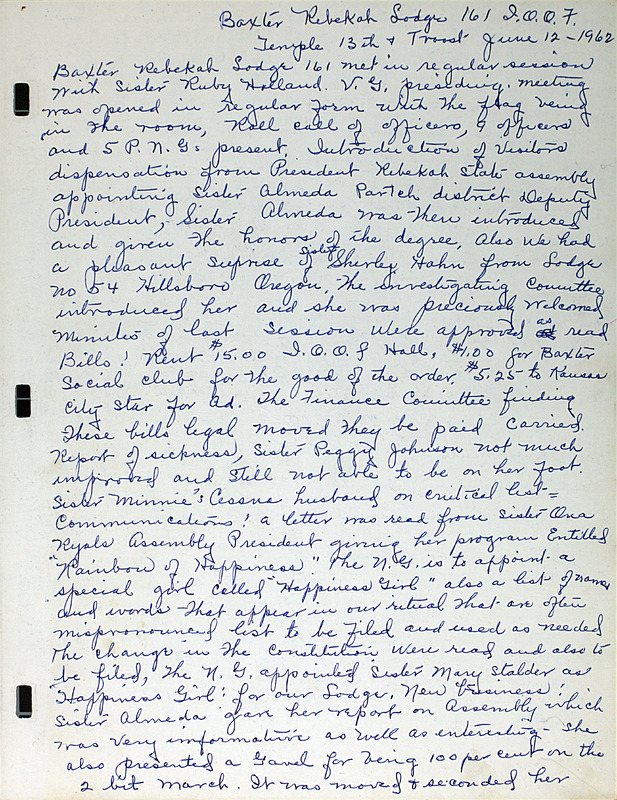 Baxter Rebekah Lodge 161 I.O.O.F.
Temple 13th & Troost June 12-1962
Baxter Rebekah Lodge 161 met in regular session
with Sister Ruby Holland. V.G. presiding. meeting
was opened in regular form with the flag being
in the room, Roll call of officers, 9 officers
and 5 P.N.G.s present, Introduction of Visitors
dispensation from President Rebekah State assembly
appointing Sister Almeda Partch district Deputy
President, Sister Almeda was then introduced
and given the honors of the degree, Also we had
a pleasant suprise of Sister Shirley Hahn from Lodge
no 54 Hillsboro Oregon, The investigating Committee
introduced her and she was preciously welcomed
Minutes of last session were approved as read
Bills! Rent $15.00 I.O.O.F Hall, $1.00 for Baxter
Social club for the good of the order, $5.25 to Kansas
City Star for ad. The Finance Committee finding
These bills legal moved they be paid Carried.
Report of sickness, Sister Peggy Johnson not much
improved and still not able to be on her foot.
Sister Minnie's Cessna husband on critical list=
Communications! a letter was read from Sister Ona
Ryals Assembly President giving her program Entitled
"Rainbow of Happiness." The N.G. is to appoint a
special girl called "Happiness Girl" also a list of names
and words that appear in our ritual that are often
mispronounced list to be filed and used as needed
The change in The Constitution were read and also to
be filed, The N.G. appointed Sister Mary Stalder as
"Happiness Girl" for our Lodge, New business!
Sister Almeda gave her report on Assembly which
was very imformative as well as interesting- she
also presented a Gavel for being 100 per cent on the
2 bit March. It was moved & seconded her